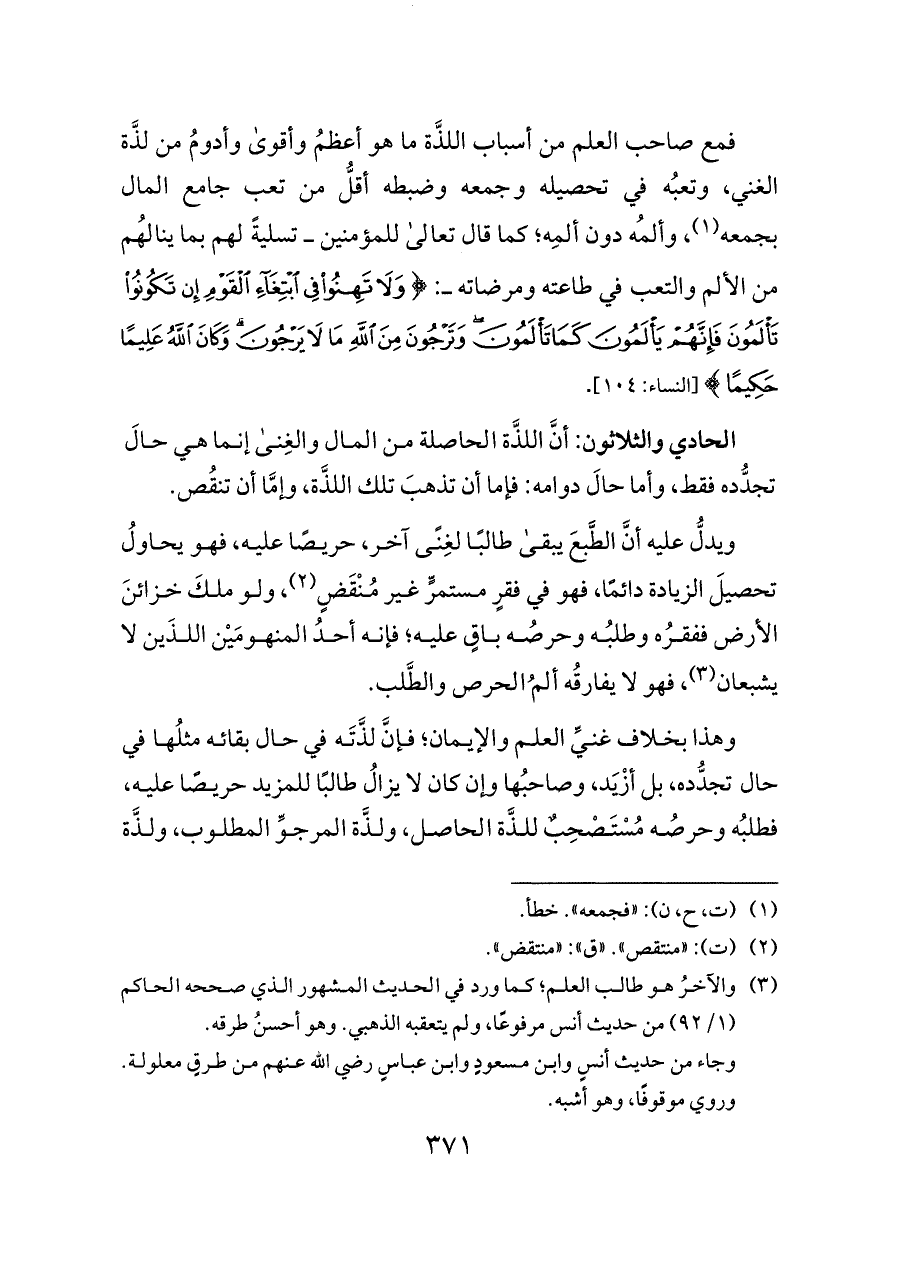 فمع صاحب العلم من أسباب اللذَّة ما هو أعظمُ وأقوىٰ وأدومُ من لذَّة
الغني، وتعبُه في تحصيله وجمعه وضبطه أقلُّ من تعب جامع المال
بجمعه(١)، وألمُه دون ألمِه؛ كما قال تعالىٰ للمؤمنين ـ تسليةً لهم بما ينالهُم
من الألم والتعب في طاعته ومرضاته ـ: ﴿ وَلَا تَهِنُواْ فِي ٱبْتِغَآءِ ٱلْقَوْمِ إِن تَكُونُواْ
تَأْلَمُونَ فَإِنَّهُمْ يَأْلَمُونَ كَمَا تَأْلَمُونَ ۖ وَتَرْجُونَ مِنَ ٱللَّهِ مَا لَا يَرْجُونَ ۗ وَكَانَ ٱللَّهُ عَلِيمًا
حَكِيمًا ﴾ [النساء: ١٠٤].
الحادي والثلاثون: أنَّ اللذَّة الحاصلة من المال والغِنىٰ إنما هي حالَ
تجدُّده فقط، وأما حالَ دوامه: فإما أن تذهبَ تلك اللذَّة، وإمَّا أن تنقُص.
ويدلُّ عليه أنَّ الطَّبعَ يبقىٰ طالبًا لغِنًى آخر، حريصًا عليه، فهو يحاولُ
تحصيلَ الزيادة دائمًا، فهو في فقرٍ مستمرٍّ غير مُنْقَضٍ(٢)، ولو ملكَ خزائنَ
الأرض ففقرُه وطلبُه وحرصُه باقٍ عليه؛ فإنه أحدُ المنهومَيْن اللذَين لا
يشبعان(٣)، فهو لا يفارقُه ألمُ الحرص والطَّلب.
وهذا بخلاف غنيِّ العلم والإيمان؛ فإنَّ لذَّتَه في حال بقائه مثلُها في
حال تجدُّده، بل أزْيَد، وصاحبُها وإن كان لا يزالُ طالبًا للمزيد حريصًا عليه،
فطلبُه وحرصُه مُسْتَصْحِبٌ للذَّة الحاصل، ولذَّة المرجوِّ المطلوب، ولذَّة
(١) (ت، ح، ن): «فجمعه». خطأ.
(٢) (ت): «منتقص». «ق»: «منتقض».
(٣) والآخرُ هو طالب العلم؛ كما ورد في الحديث المشهور الذي صححه الحاكم
(١/ ٩٢) من حديث أنس مرفوعًا، ولم يتعقبه الذهبي. وهو أحسنُ طرقه.
وجاء من حديث أنسٍ وابن مسعودٍ وابن عباسٍ رضي الله عنهم من طرقٍ معلولة.
وروي موقوفًا، وهو أشبه.
٣٧١